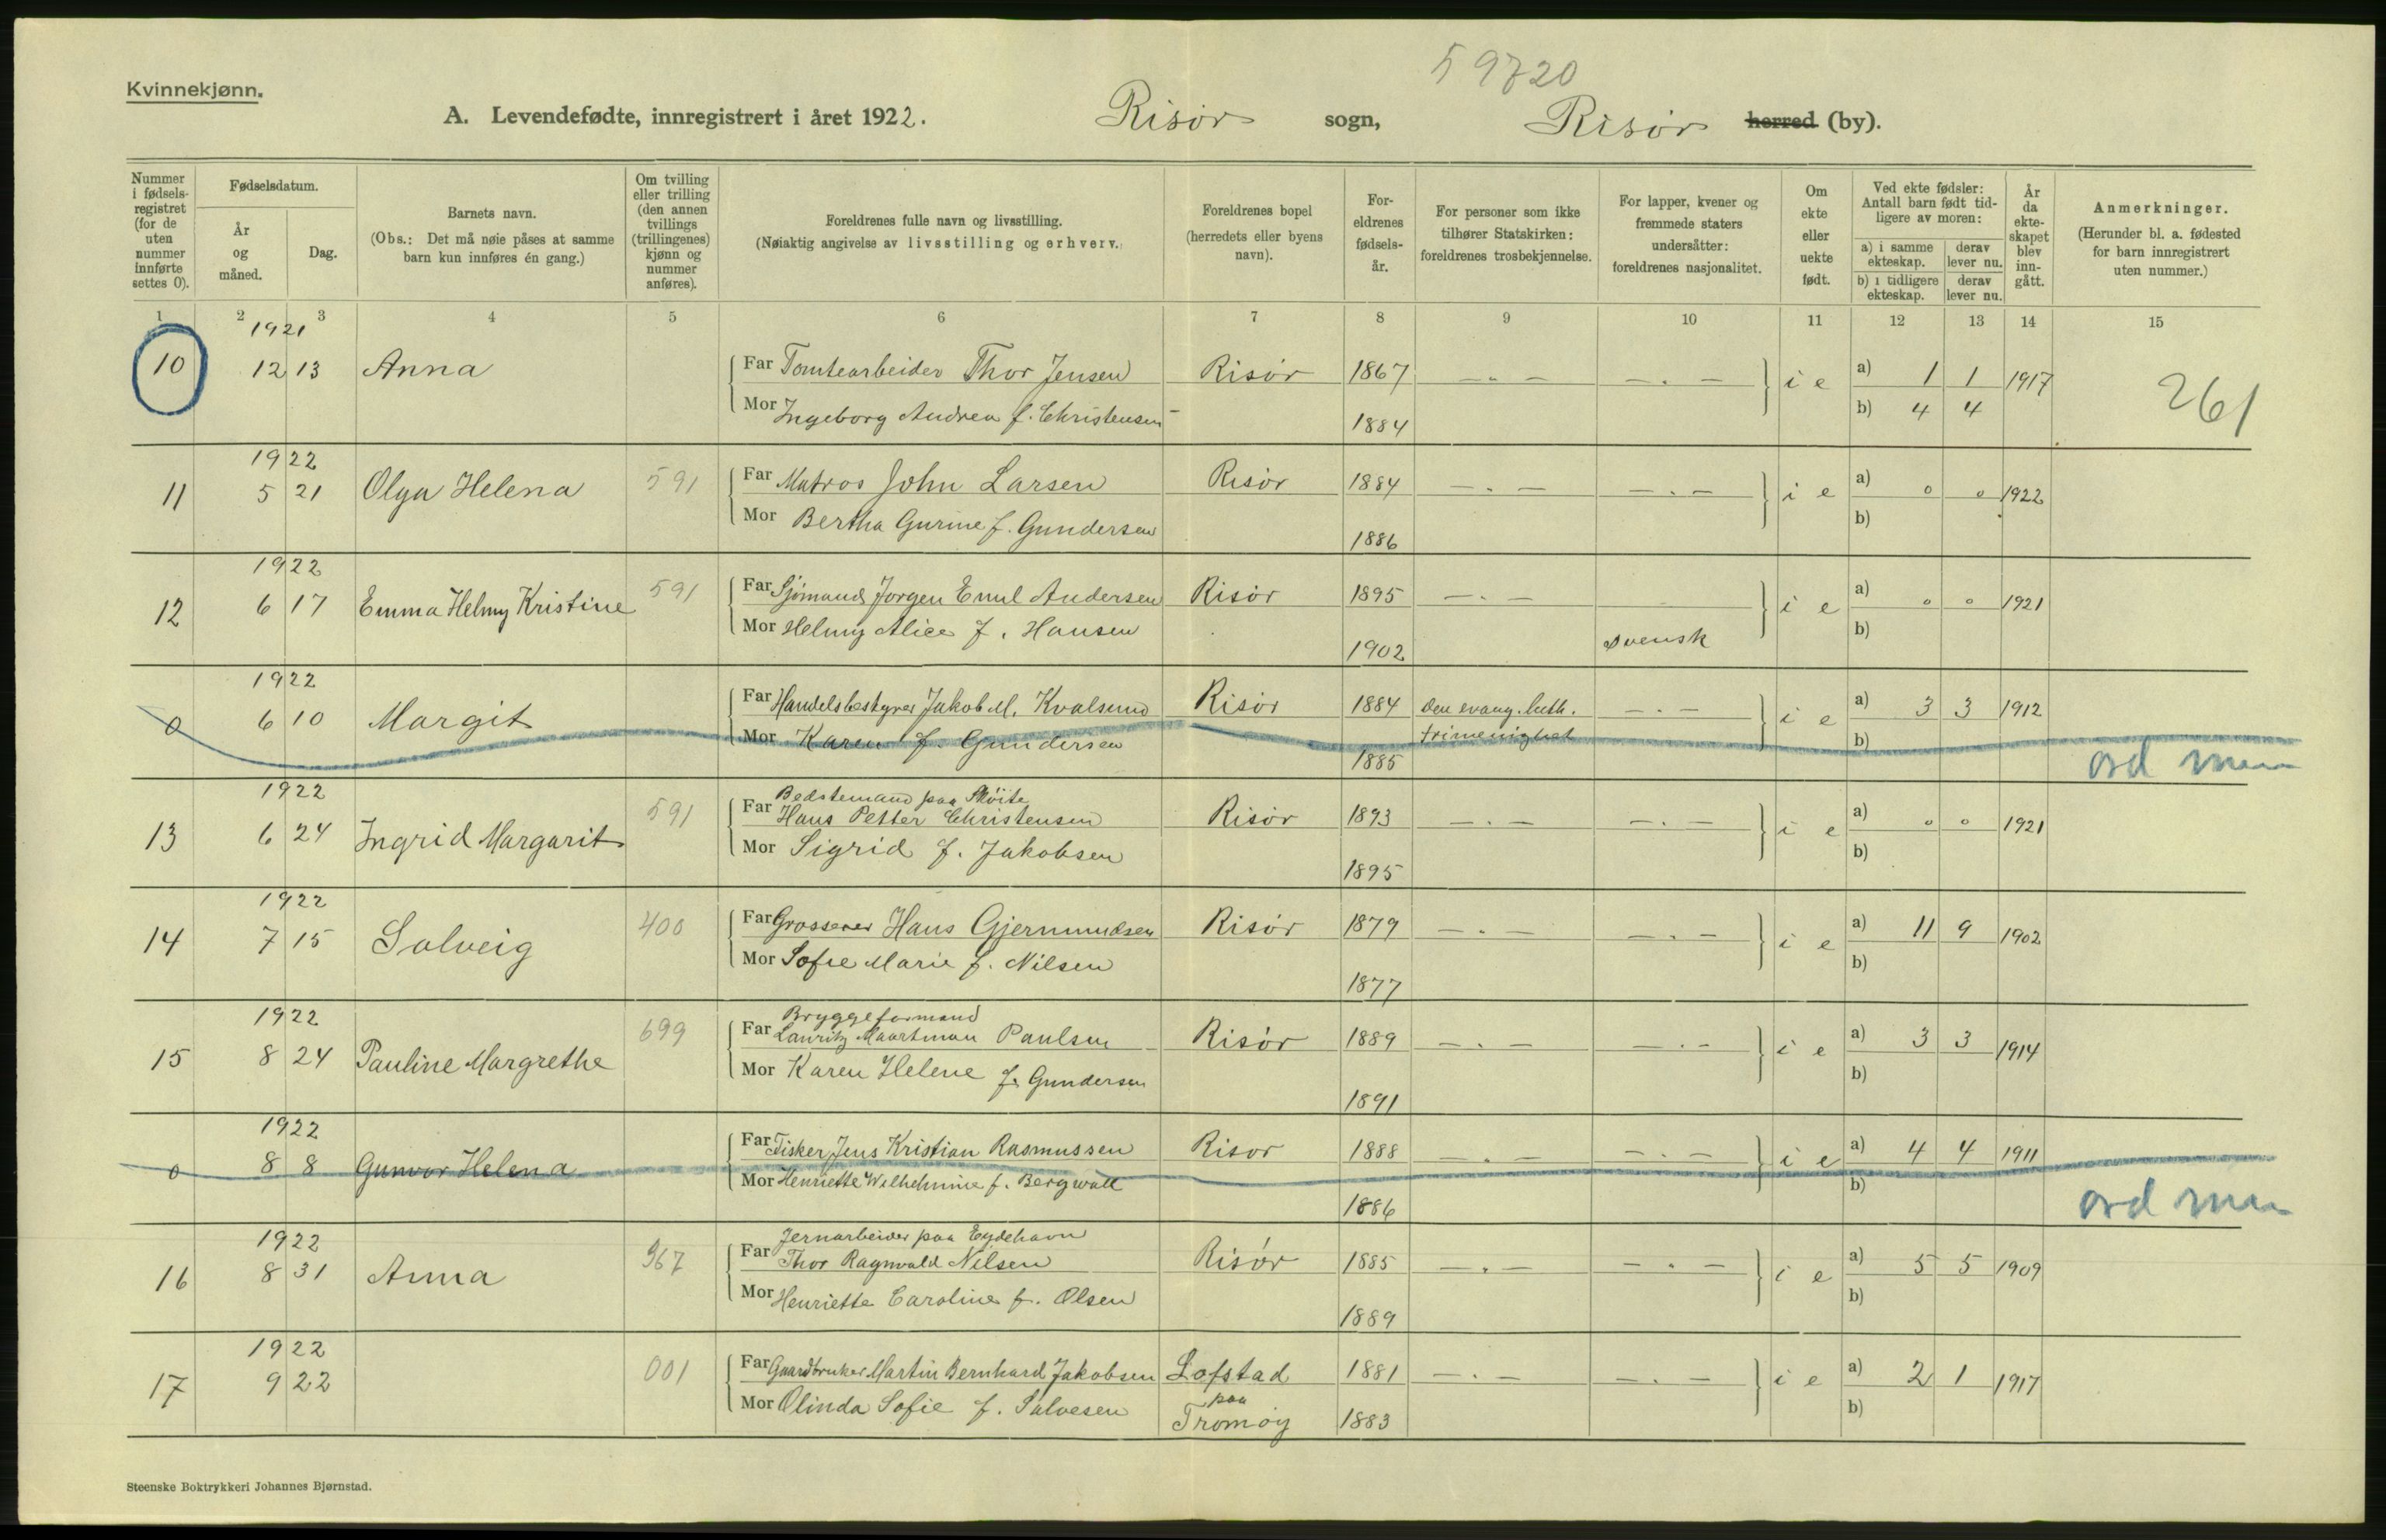 59720
Kvinnekjønn.
A. Levendefødte, innregistrert i året 1922. Risør sogn, Risør herred (by).
Nummer i fødsels-registret (for de uten nummer innførte settes 0).
Fødselsdatum.
År og måned.
Dag.
Barnets navn.
(Obs.: Det må nøie påses at samme barn kun innføres én gang.)
Om tvilling eller trilling (den annen tvillings (trillingenes) kjønn og nummer anføres).
Foreldrenes fulle navn og livsstilling.
(Nøiaktig angivelse av livsstilling og erhverv.)
Foreldrenes bopel (herredets eller byens navn).
For-eldrenes fødsels-år.
For personer som ikke tilhører Statskirken: foreldrenes trosbekjennelse.
For lapper, kvener og fremmede staters undersåtter: foreldrenes nasjonalitet.
Om ekte eller uekte født.
Ved ekte fødsler: Antall barn født tid-ligere av moren:
a) i samme ekteskap. derav lever nu.
b) i tidligere ekteskap. derav lever nu.
År da ekte-skapet blev inn-gått.
Anmerkninger.
(Herunder bl. a. fødested for barn innregistrert uten nummer.)
1 2 3 4 5 6 7 8 9 10 11 12 13 14 15
1921
10 12 13 Anna Far Tomtearbeider Thor Jensen Risør 1867 —„— —„— i e a) 1 1 1917 261
Mor Ingeborg Andrea f. Christensen 1884 b) 4 4
1922
11 5 21 Olga Helena 591 Far Matros John Larsen Risør 1884 —„— —„— i e a) 0 0 1922
Mor Bertha Gurine f. Gundersen 1886 b)
1922
12 6 17 Emma Helmy Kristine 591 Far Sjømand Jørgen Emil Andersen Risør 1895 —„— i e a) 0 0 1921
Mor Helmy Alice f. Hansen 1902 svensk b)
1922
0 6 10 Margit Far Handelsbestyrer Jakob M. Kvalsund Risør 1884 Den evang. luth. —„— i e a) 3 3 1912
Mor Karen f. Gundersen 1885 frimenighet b) ord
1922
13 6 24 Ingrid Margarit 591 Far Bedstemand paa Skøite
Hans Petter Christensen Risør 1893 —„— —„— i e a) 0 0 1921
Mor Sigrid f. Jakobsen 1895 b)
1922
14 7 15 Solveig 400 Far Grosserer Hans Gjermundsen Risør 1879 —„— —„— i e a) 11 9 1902
Mor Sofie Marie f. Nilsen 1877 b)
1922
15 8 24 Pauline Margrethe 699 Far Bryggeformand
Lauritz Maartman Paulsen Risør 1889 —„— —„— i e a) 3 3 1914
Mor Karen Helene f. Gundersen 1891 b)
1922
0 8 8 Gunvor Helena Far Fisker Jens Kristian Rasmussen Risør 1888 —„— —„— i e a) 4 4 1911
Mor Henriette Wilhelmine f. Bergwall 1886 b) ord
1922
16 8 31 Anna 967 Far Jernarbeider paa Eydehavn
Thor Ragnvald Nilsen Risør 1885 —„— —„— i e a) 5 5 1909
Mor Henriette Caroline f. Olsen 1889 b)
1922
17 9 22 001 Far Gaardbruker Martin Bernhard Jakobsen Lofstad 1881 —„— —„— i e a) 2 1 1917
Mor Olinda Sofie f. Salvesen paa Tromøy 1883 b)
Steenske Boktrykkeri Johannes Bjørnstad.